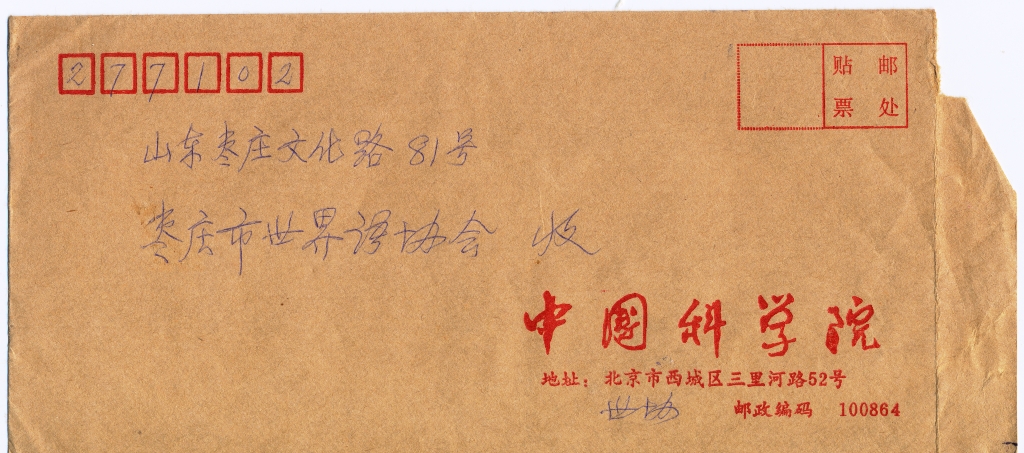 277102
贴邮
票处
山东枣庄文化路81号
枣庄市世界语协会 收
中国科学院
地址：北京市西城区三里河路52号
世协 邮政编码 100864